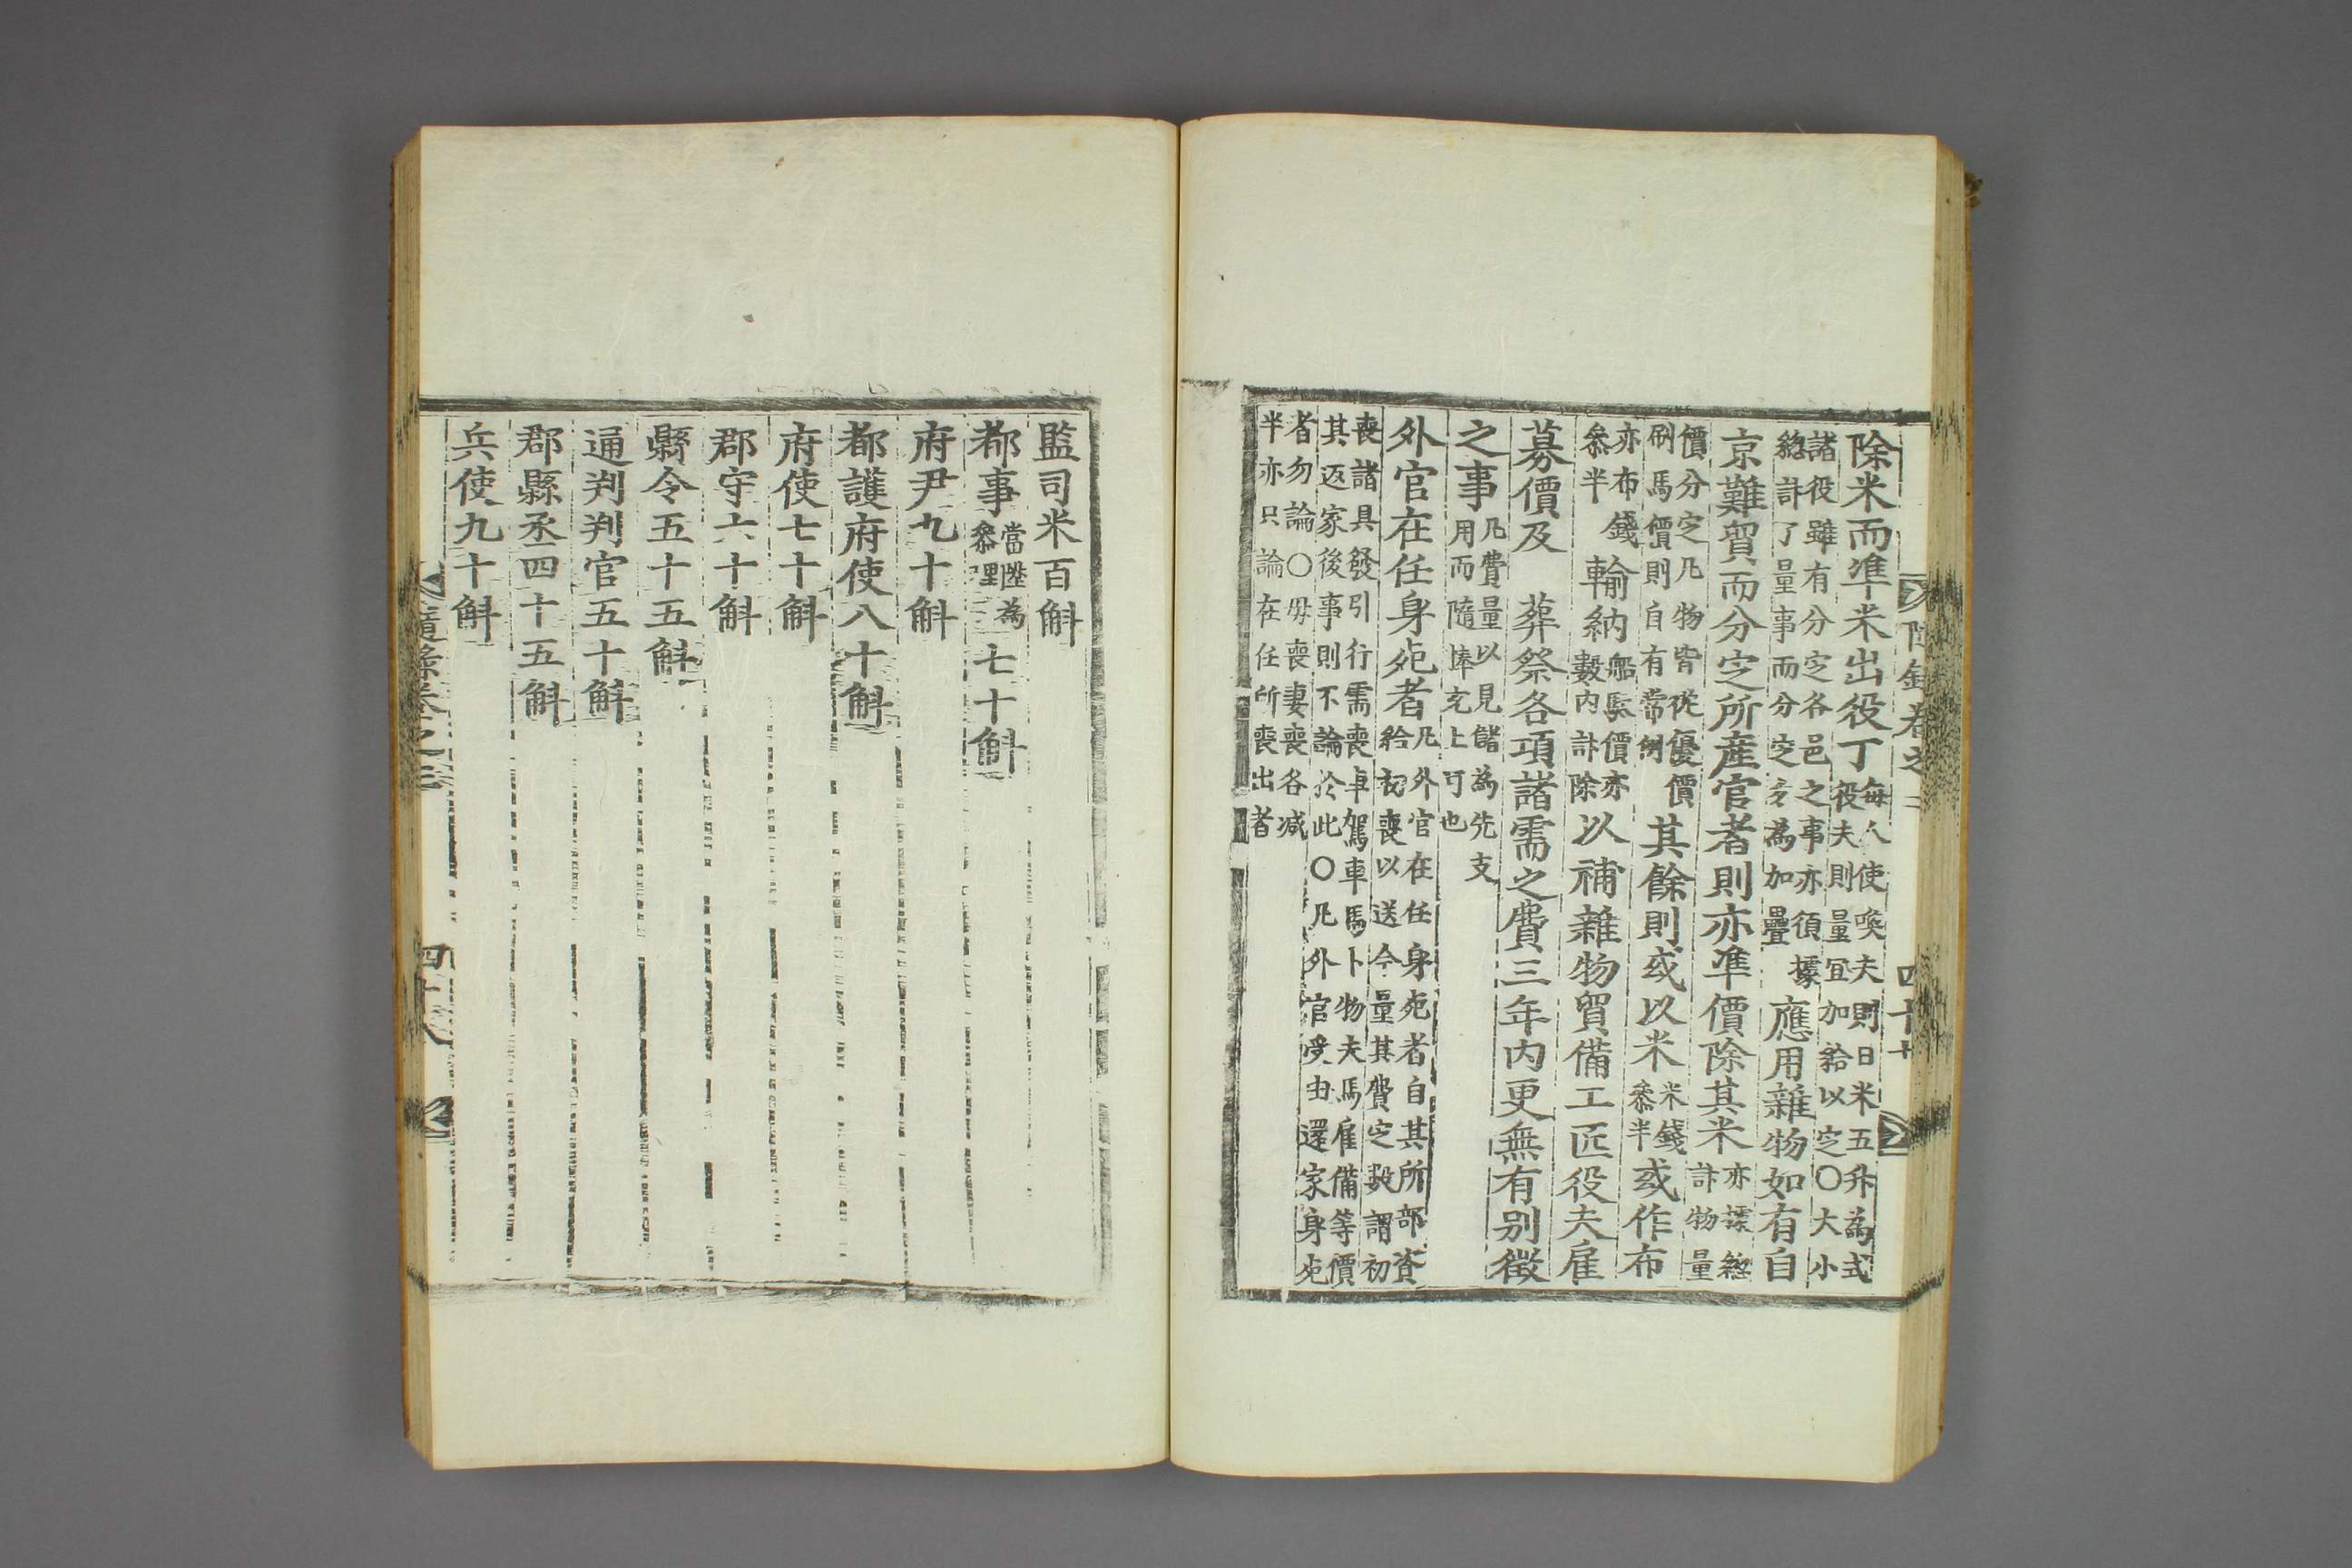 除米而準米出役丁 每人使喚夫則日米五升為式役夫則量宜加給以定○大小
諸役雖有分定各邑之事亦須據緫計了量事而分定多為加疊 應用雜物如有自
京難貿而分定所產官者則亦準價除其米 亦據緫計物量
價分定凡物皆從優價刷馬價則自有常例 其餘則或以米 米錢叅半 或作布
亦布錢叅半 輸納 船馱價亦數內計除 以補雜物貿備工匠役夫雇
募價及 葬祭各項諸需之費三年內更無有別徵
之事 凡費量以見儲為先支用而隨俸充上可也
外官在任身死者 凡外官在任身死者自其所部資給初喪以送今量其費定數謂初
喪諸具發引行需喪車駕車馬卜物夫馬雇備等價其返家後事則不論於此○凡外官受由還家身死
者勿論○母喪妻喪各減半亦只論在任所喪出者
監司米百斛
都事 當陞為叅理 七十斛
府尹九十斛
都護府使八十斛
府使七十斛
郡守六十斛
縣令五十五斛
通判判官五十斛
郡縣丞四十五斛
兵使九十斛
隨錄卷之三
四十八